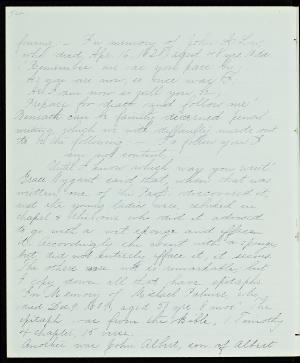 lowing: – In memory of John A. Low
who died Apr. 16, 1828, aged 48 yrs. Also
'Remember me as you pass by,
As you are now, so once was I,
As I am now so you be,
Prepare for death and follow me'
Beneath can be discerned pencil
writing, which we with difficulty made out
to be the following: – To follow you I
am not content,
Until I know which way you went'
Grace said that when that was
written one of the discovered it,
and the young ladies were, rebuked in
chapel & whoever who did it advised
to go with a wet sponge and efface
it. Accordingly she went with a sponge
but, did not entirely efface it, it seems.
The others are not so remarkable but
I copy down all that have epitaphs.
In Memory of Michael who
died Dec. aged 57 yrs. 9 mos. The
epitaph is from the Bible, 1 Timothy
chapter, 15 verse.
Another was John Albert, son of Albert